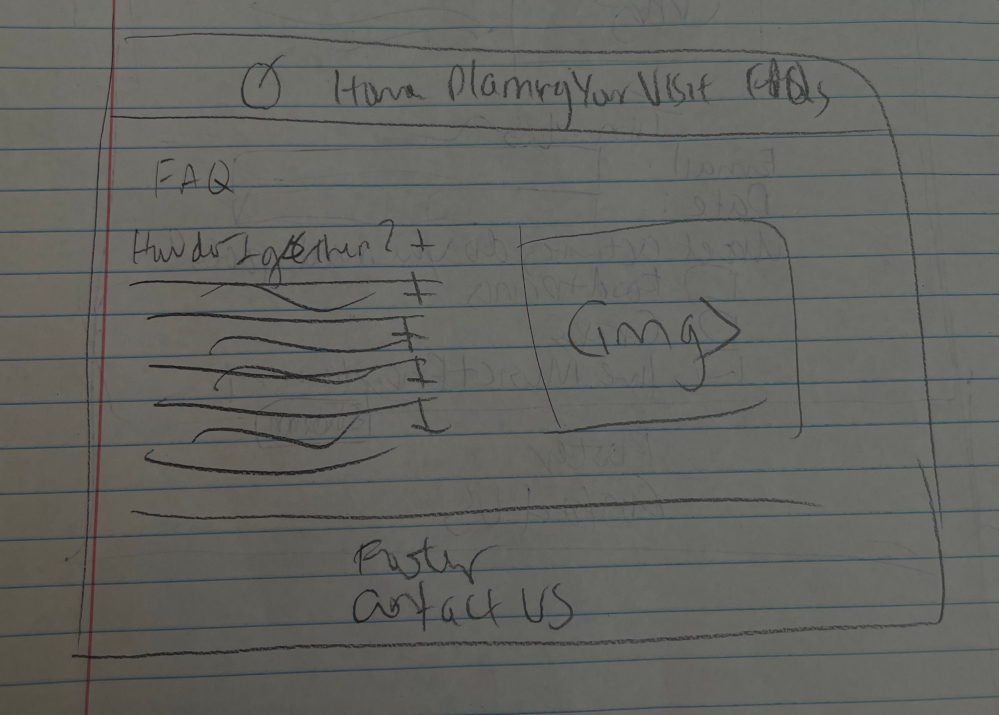 Home Planning Your Visit FAQs
FAQ
How do I get there? +
+
+
+
+
<img>
Footer
Contact US